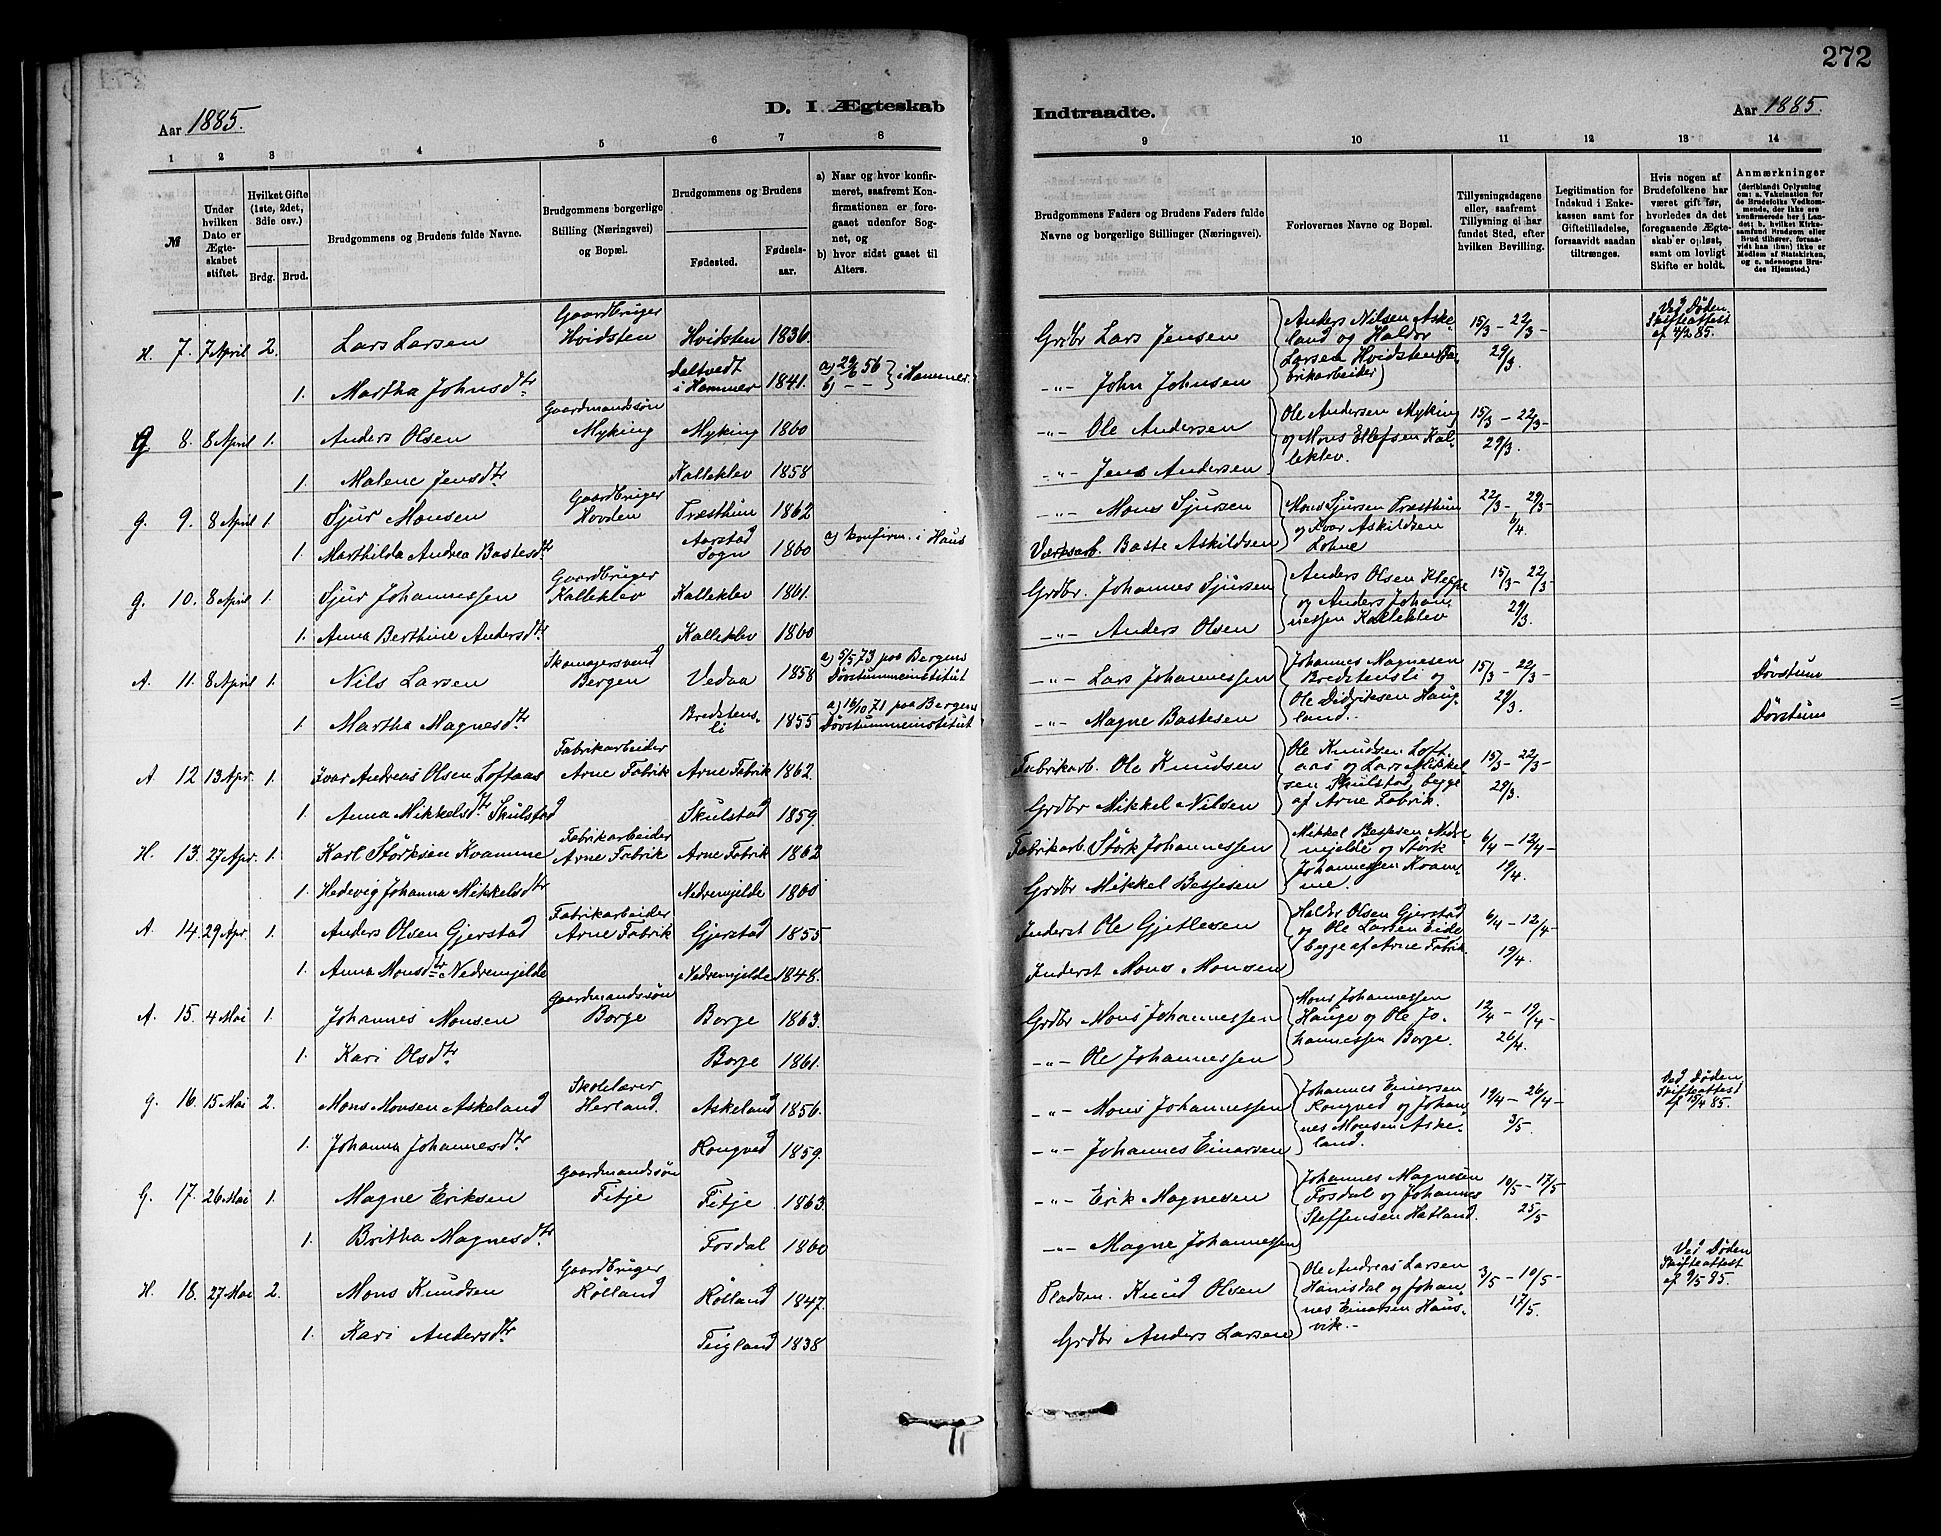 272
Aar 1885.
D. I. Ægteskab
Indtraadte.
Aar 1885.
1 2 3 4 5 6 7 8
9 10 11 12 13 14
№
Under hvilken Dato er Ægteskabet stiftet.
Hvilket Gifte (1ste, 2det, 3die osv.)
Brdg. Brud.
Brudgommens og Brudens fulde Navne.
Brudgommens borgerlige Stilling (Næringsvei) og Bopæl.
Brudgommens og Brudens
Fødested.
Fødselsaar.
a) Naar og hvor konfirmeret, saafremt Konfirmationen er foregaaet udenfor Sognet, og
b) hvor sidst gaaet til Alters.
Brudgommens Faders og Brudens Faders fulde Navne og borgerlige Stillinger (Næringsvei).
Forlovernes Navne og Bopæl.
Tillysningsdagene eller, saafremt Tillysning ei har fundet Sted, efter hvilken Bevilling.
Legitimation for Indskud i Enkekassen samt for Giftetilladelse, forsaavidt saadan tiltrænges.
Hvis nogen af Brudefolkene har været gift før, hvorledes da det foregaaende Ægteskab er opløst, samt om lovligt Skifte er holdt.
Anmærkninger
(deriblandt Oplysning om: a. Vaksination for de Brudefolks Vedkommende, der ikke ere konfirmerede her i Landet; b. hvilket Kirkesamfund Brudgom eller Brud tilhører, forsaavidt han (hun) ikke er Medlem af Statskirken, og c. udensogns Brudes Hjemsted.)
H. 7. 7 April 2. Lars Larsen Gaardbruger Hvidsten Hvidsten 1836. Grdbr Lars Jensen Anders Nilsen Askeland og Haldor Larsen Hvidsten (Fabrikarbeider) 15/3 – 22/3 – 29/3. Ved Døden Skifteattest af 4/2 85.
1. Martha Johnsdtr Daltvedt i Hammer 1841. a) 29/6 56 b) – – } i Hammer. –"– John Johnsen
G 8. 8 April 1. Anders Olsen Gaardmandssøn Myking Myking 1860 –"– Ole Andersen Ole Andersen Myking og Mons Ellefsen Kalleklev. 15/3 – 22/3 – 29/3.
1. Malene Jensdtr Kalleklev 1858 –"– Jens Andersen
G. 9. 8 April 1. Sjur Monsen Gaardbruger Hovden Træsthun 1862 –"– Mons Sjursen Mons Sjursen Træsthun og Ivar Askildsen Lohne 22/3 – 29/3 – 6/4
1. Marthilda Andrea Bastesdtr Aarstad Sogn 1860 a) konfirm. i Haus Værksarb. Baste Askildsen
G. 10. 8 April 1. Sjur Johannessen Gaardbruger Kalleklev Kalleklev 1861. Grdbr. Johannes Sjursen Anders Olsen Kleppe og Anders Johannessen Kalleklev 15/3 – 22/3 – 29/3.
1. Anna Berthine Andersdtr Kalleklev 1860 –"– Anders Olsen
A. 11. 8 April 1. Nils Larsen Skomagersvend Bergen Vedaa 1858 a) 5/5 73 paa Bergens Døvstummeinstitut –"– Lars Johannessen Johannes Magnesen Bredstensli og Ole Didriksen Haugland. 15/3 – 22/3 – 29/3. Døvstum
1. Martha Magnesdtr Bredstensli 1855 a) 16/10 71 paa Bergens Døvstummeinstitut –"– Magne Bastesen Døvstum
A 12 13 Apr. 1. Ivar Andreas Olsen Loftaas Fabrikarbeider Arne Fabrik Arne Fabrik 1862. Fabrikarb. Ole Knudsen Ole Knudsen Loftaas og Lars Mikkelsen Skulstad, begge af Arne Fabrik. 15/3 – 22/3 – 29/3.
1. Anna Mikkelsdtr Skulstad Skulstad 1859. Grdbr Mikkel Nilsen
H. 13. 27 Apr. 1. Karl Størksen Kvamme Fabrikarbeider Arne Fabrik Arne Fabrik 1862 Fabrikarb. Størk Johannessen Mikkel Bessesen Nedremjelde og Størk Johannessen Kvamme. 6/4 – 12/4 – 19/4.
1. Hedevig Johanna Mikkelsdtr Nedremjelde 1860 Grdbr Mikkel Bessesen
A. 14. 29 Apr. 1. Anders Olsen Gjerstad Fabrikarbeider Arne Fabrik Gjerstad 1855 Inderst Ole Gjetlesen Haldor Olsen Gjerstad og Ole Larsen Eide, begge af Arne Fabrik. 6/4 – 12/4 – 19/4.
1. Anna Monsdtr Nedremjelde Nedremjelde 1848. Inderst Mons Monsen
A. 15. 4 Mai 1. Johannes Monsen Gaardmandssøn Borge Borge 1863. Grdbr Mons Johannessen Mons Johannessen Hauge og Ole Johannessen Borge. 12/4 – 19/4 – 26/4.
1. Kari Olsdtr Borge 1861. –"– Ole Johannessen
G. 16. 15 Mai 2. Mons Monsen Askeland Skolelærer Herland. Askeland 1856. –"– Mons Johannessen Johannes Einersen Rongved og Johannes Monsen Askeland. 19/4 – 26/4 – 3/5. Ved Døden Skifteattest af 15/4 85.
1. Johanna Johannesdtr Rongved 1859. –"– Johannes Einarsen
G. 17. 26 Mai 1. Magne Eriksen Gaardmandssøn Titje Titje 1863. –"– Erik Magnesen Johannes Magnesen Fosdal og Johannes Steffensen Hatland. 10/5 – 17/5 25/5
1. Britha Magnesdtr Fosdal 1860 –"– Magne Johannessen
H. 18. 27 Mai 2. Mons Knudsen Gaardbruger Rølland Rølland 1847. Pladsm. Knud Olsen Ole Andreas Larsen Hanisdal og Johannes Einarsen Hausvik. – 3/5 – 10/5 – 17/5. Ved Døden Skifteattest af 9/5 85.
1. Kari Andersdtr Teigland 1838 Grdbr Anders Larsen